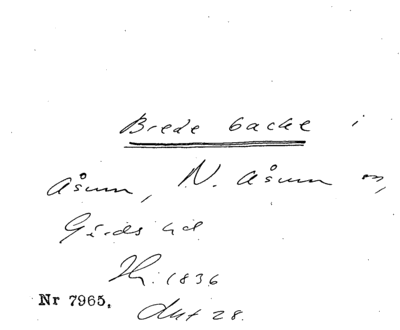 Brede backe i
Åsum, N. Åsum sn,
Gärds hd
Hr. 1836
Nr 7965.
Akt 28.